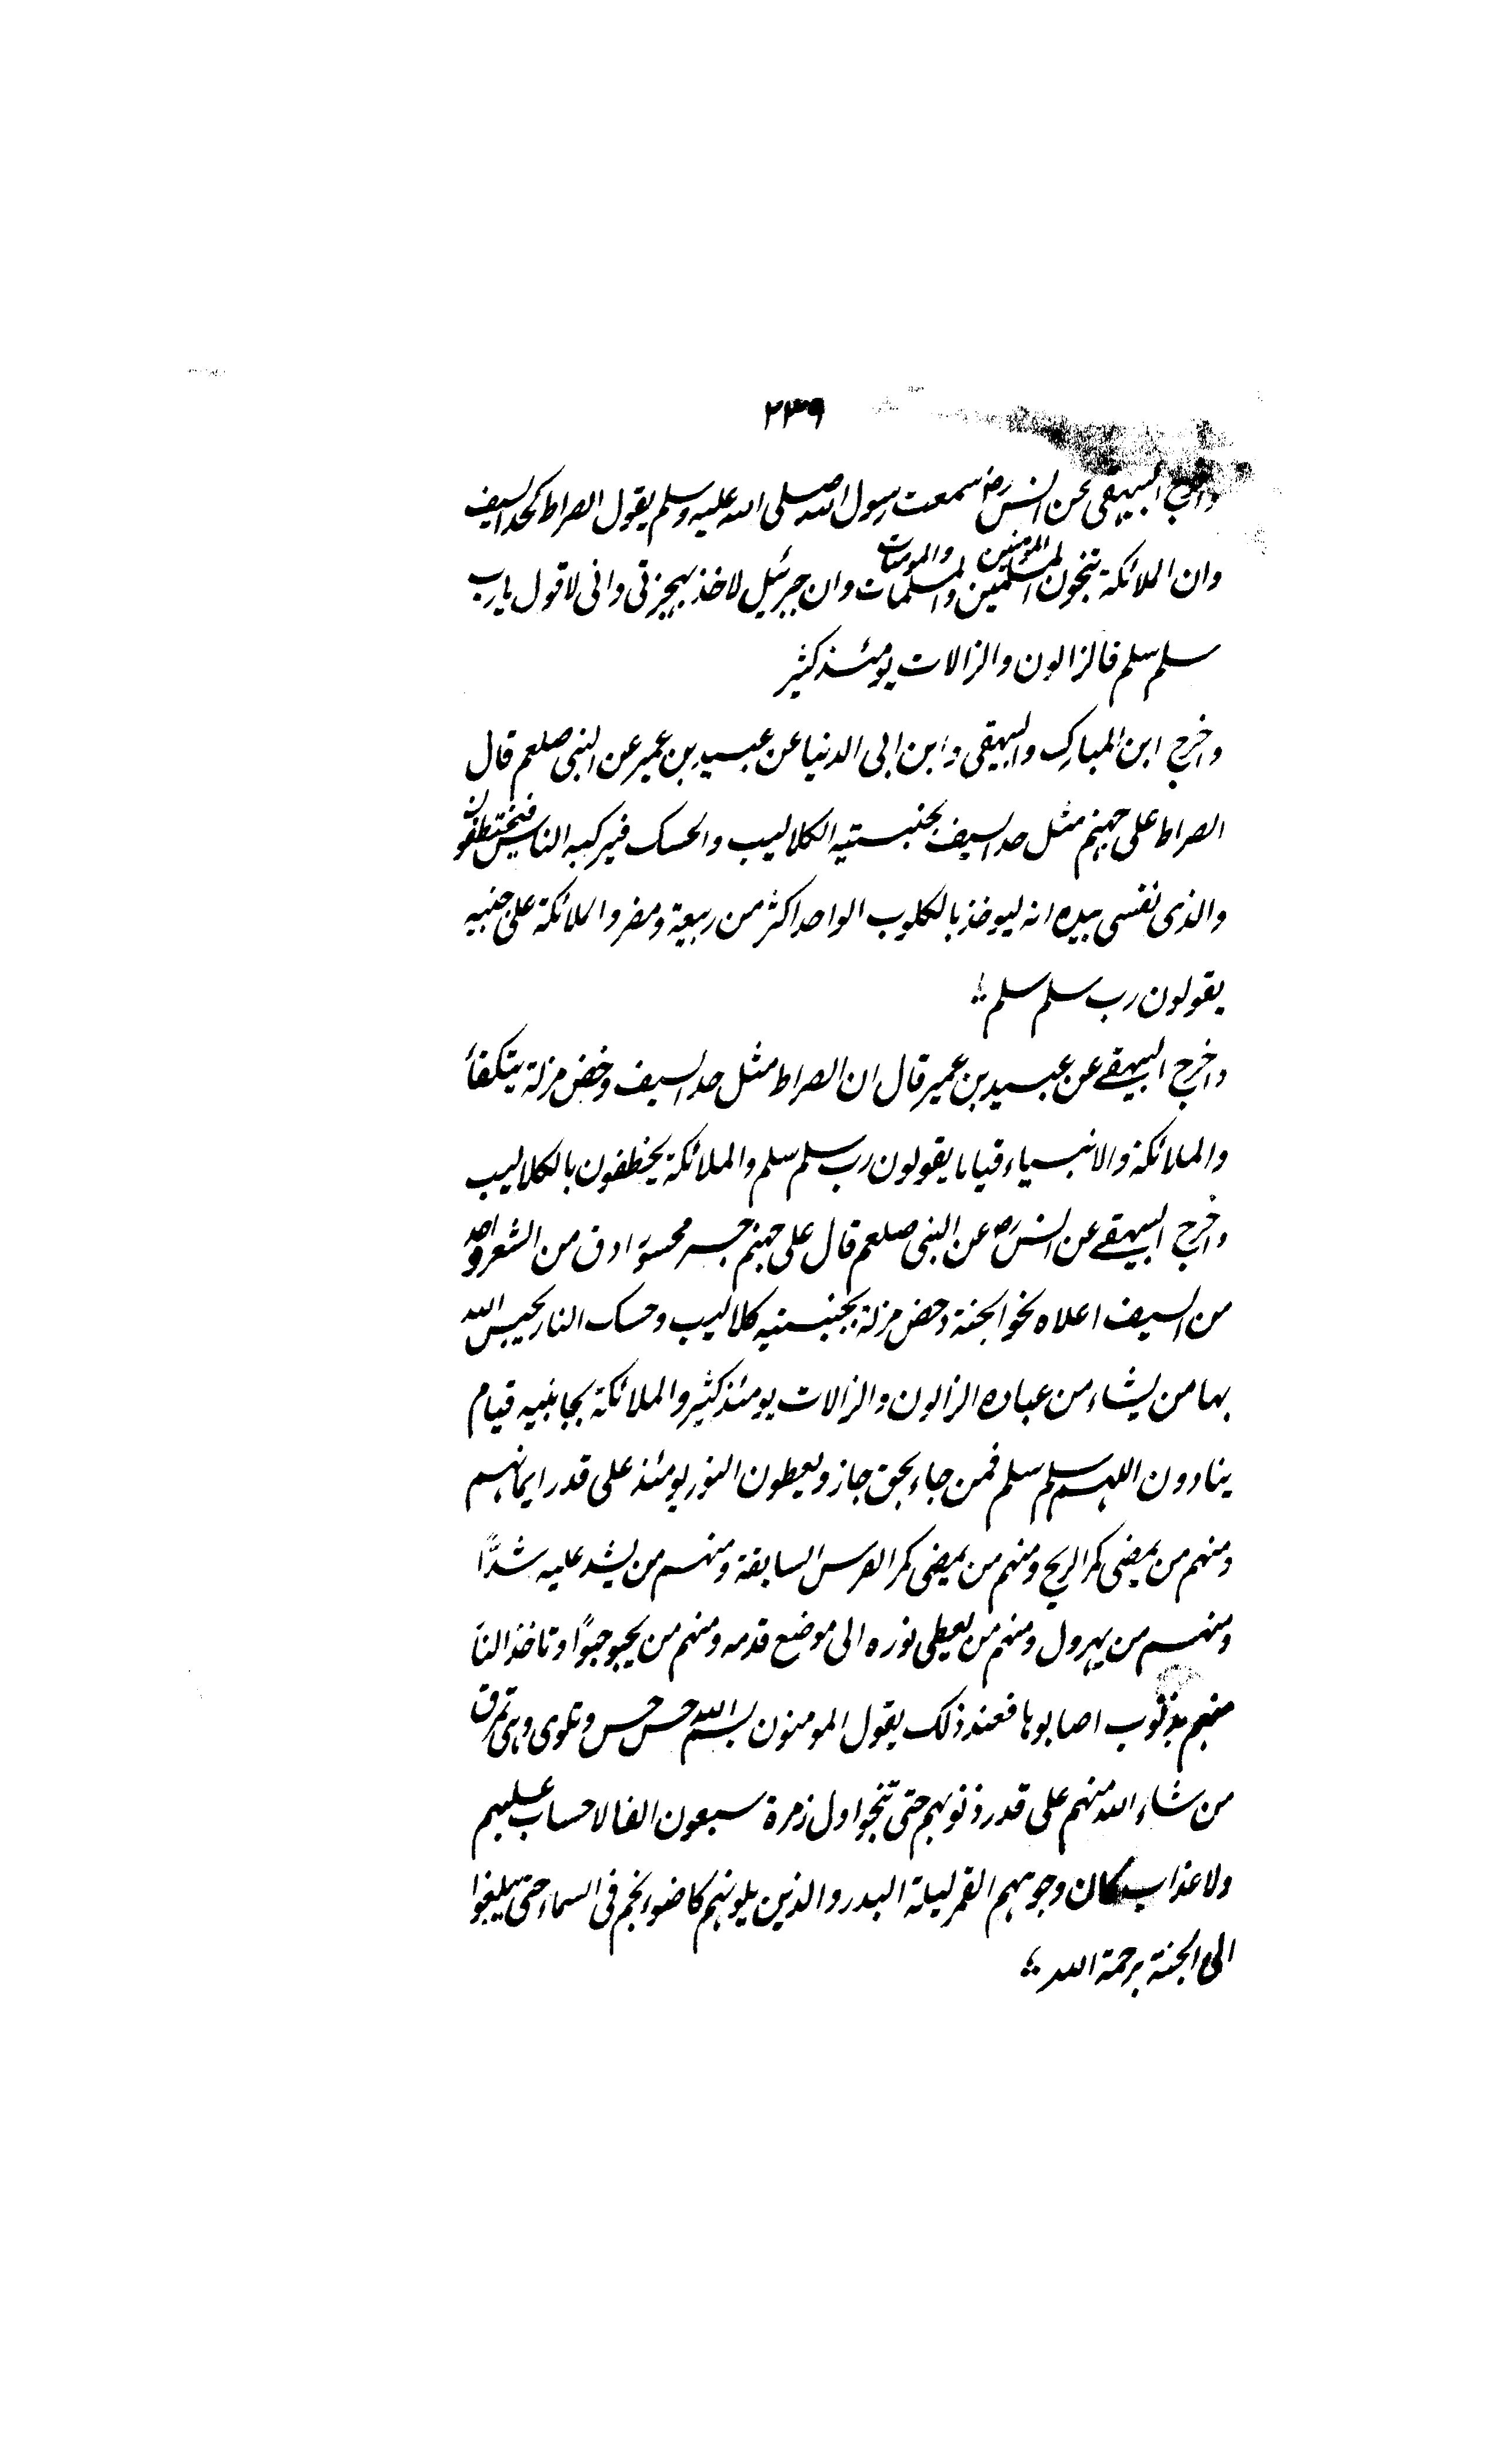 ۲۳۹
واخرج البیهقی عن انس رض سمعت رسول الله صلی الله علیه وسلم یقول الصراط کحد السیف
وان الملائکة تنجون المسلمین والمسلمات المومنین والمومنات وان جبرئیل لاخذ بحجزتی وانی لاقول یا رب
سلم سلم فالزالون والزالات یومئذ کثیر
واخرج ابن المبارک والبیهقی وابن ابی الدنیا عن عبید بن عمیر عن النبی صلعم قال
الصراط علی جهنم مثل حد السیف بجنبتیه الکلالیب والحسک فیرکبه الناس فیختطفون
والذی نفسی بیده انه لیوخذ بالکلوب الواحد اکثر من ربیعة ومضر والملائکة علی جنبیه
یقولون رب سلم سلم ؛
واخرج البیهقے عن عبید بن عمیر قال ان الصراط مثل حد السیف وحض مزلة یتکفأ
والملائکة والانبیاء قیاما یقولون رب سلم سلم والملائکة یخطفون بالکلالیب
واخرج البیهقے عن انس رض عن النبی صلعم قال علی جهنم جسر محسو ادق من الشعر واحد
من السیف اعلاه نحو الجنة دحض مزلة بجنبتیه کلالیب وحسک النار یحبس الله
بها من یشاء من عباده الزالون والزالات یومئذ کثیر والملائکة بجانبیه قیام
ینادون اللهم سلم سلم فمن جاء بحق جاز ویعطون النور یومئذ علی قدر ایمانهم
ومنهم من یمضی کمر الریح ومنهم من یمضی کمر الفرس السابقة ومنهم من یشد علیه شدًّا
ومنهم من یهرول ومنهم من یعطی نوره الی موضع قدمه ومنهم من یحبو حبوًا وتاخذ النا
منهم بذنوب اصابوها فعند ذلک یقول المومنون بسم الله حس حس وتلوی وهی تحرق
من شاء الله منهم علی قدر ذنوبهم حتی تنجو اول زمرة سبعون الفا لا حساب علیهم
ولا عذاب کان وجوههم القمر لیلة البدر والذین یلونهم کاضوء نجم فی السماء حتی یبلغوا
الی الجنة برحمة الله ؛